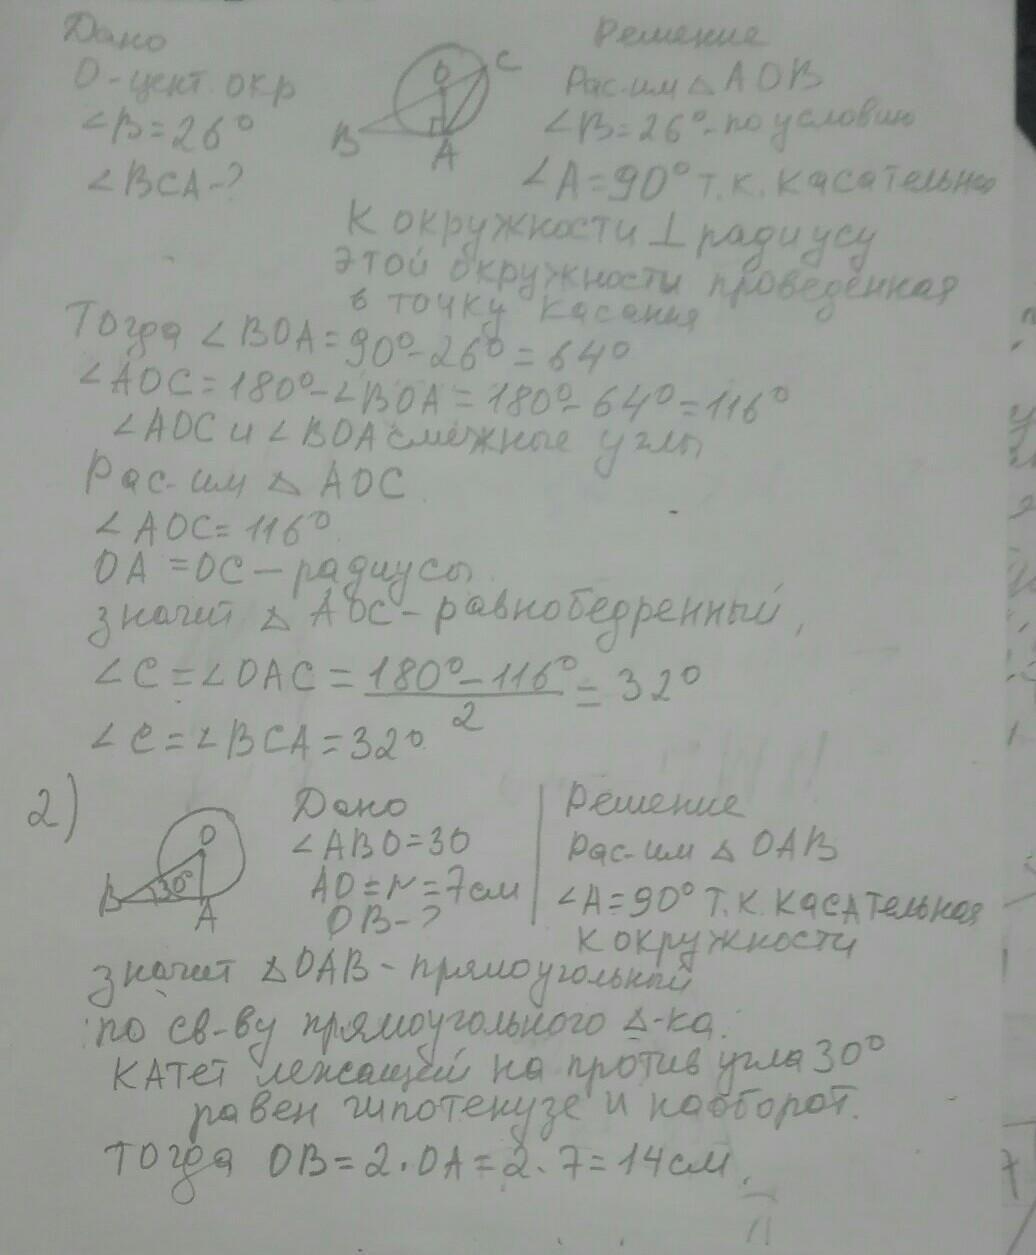 Дано
О-цент. окр
∠B=26°
∠BCA-?
О
C
B
A
Решение
Рас-им △ AOB
∠B=26°-по условию
∠A=90° т.к. касательная
к окружности ⊥ радиусу
этой окружности проведённая
в точку касания
Тогда ∠BOA=90°-26°=64°
∠AOC=180°-∠BOA=180°-64°=116°
∠AOC и ∠BOA смежные углы
Рас-им △ AOC
∠AOC=116°
OA=OC-радиусы
значит △ AOC-равнобедренный,
∠C=∠OAC=180°-116°/2=32°
∠C=∠BCA=32°
2)
О
B
30°
A
Дано
∠ABO=30
AO=r=7см
OB-?
Решение
Рас-им △ OAB
∠A=90° т.к. касательная
к окружности
значит △OAB-прямоугольный
по св-ву прямоугольного △-ка.
Катет лежащей на против угла 30°
равен гипотенузе и наоборот.
Тогда OB=2·OA=2·7=14см.